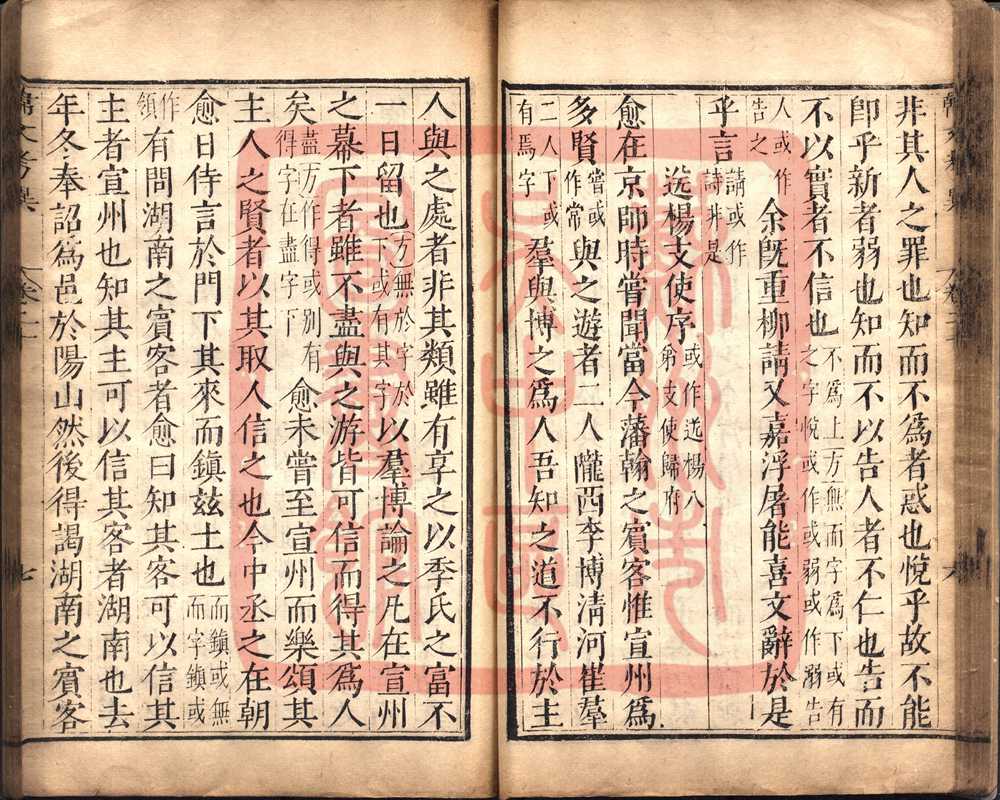 非其人之罪也知而不為者惑也悅乎故不能
卽乎新者弱也知而不以告人者不仁也告而
不以實者不信也不為上方無而字為下或有之字悅或作或弱或作溺告
人或作告之余既重柳請又嘉浮屠能喜文辭於是
乎言請或作詩非是
送楊支使序或作送楊八弟支使歸府
愈在京師時嘗聞當今藩翰之賓客惟宣州為
多賢嘗或作常與之遊者二人隴西李博清河崔羣
二人下或有焉字羣與博之為人吾知之道不行於主
人與之處者非其類雖有享之以季氏之富不
一日留也方無於字於下或有其字以羣博論之凡在宣州
之幕下者雖不盡與之游皆可信而得其為人
矣盡方作得或別有得字在盡字下愈未嘗至宣州而樂頌其
主人之賢者以其取人信之也今中丞之在朝
愈日侍言於門下其來而鎮茲土也而鎮或無而字鎮或
作領有問湖南之賓客者愈曰知其客可以信其
主者宣州也知其主可以信其客者湖南也去
年冬奉詔為邑於陽山然後得謁湖南之賓客